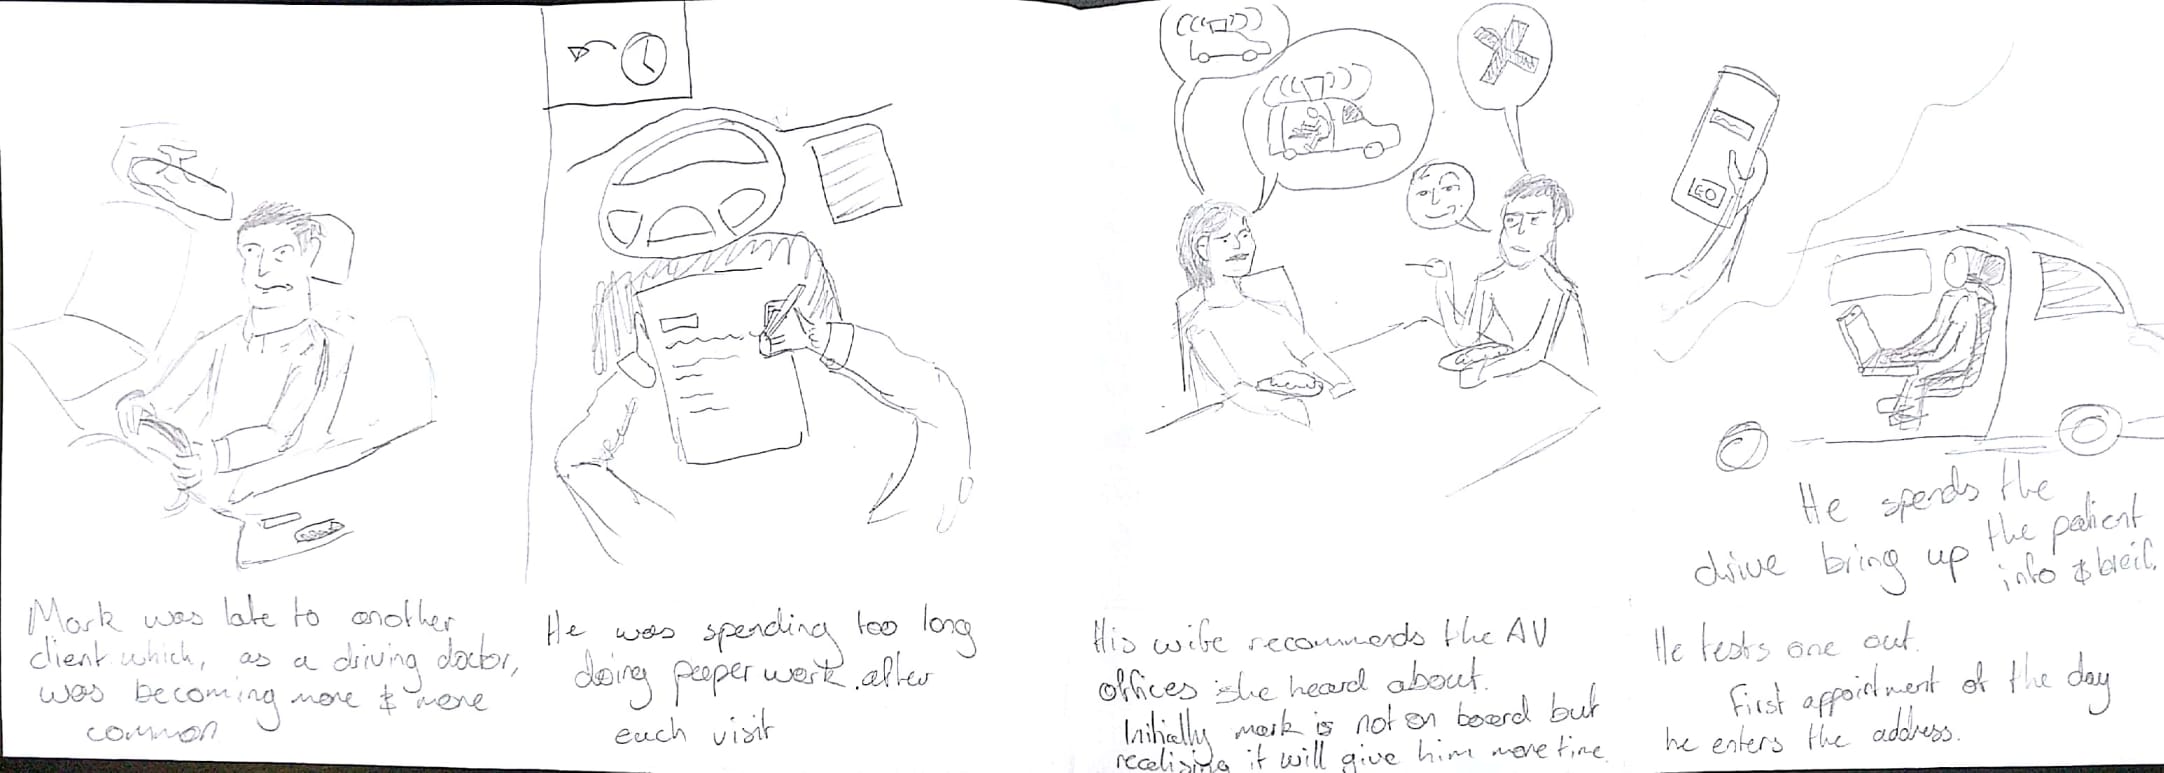 Mark was late to another
client which, as a driving doctor,
was becoming more & more
common
He was spending too long
doing peeper work. after
each visit
His wife recommends the AV
offices she heard about.
Initially mark is not on board but
recalising it will give him more time.
GO
He spends the
drive bring up the patient
info & breif.
He tests one out.
First appointment of the day
he enters the address.